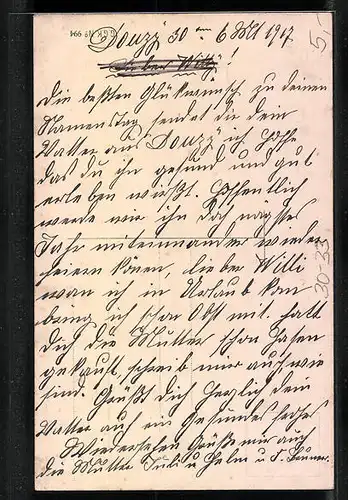 R&K Nº 994
Douzÿ 30 am 6 Okt 1917
Lieber Willÿ!
5,-
die beßten Glückwunsch zu deinen
Namenstag sendet dir dein
Vatter aus Douzÿ ich hoffe
das du ihn gesund und gut
erleben wirßt. Hoffentlich
werde wir ihn doch nagstes
Jahr miteinander wieder
feiern könen, lieber Willi
wan ich in Urlaub kom
bring ich schon Obst mit. hatt
dich die Mutter schon Hasen
gekauft, schreib mir auch wie
sind. Grüßt dich herzlich dein
Vatter auch ein Gesundes frohes
Wiedersehen Grüße mir auch
die Mutter
30-33